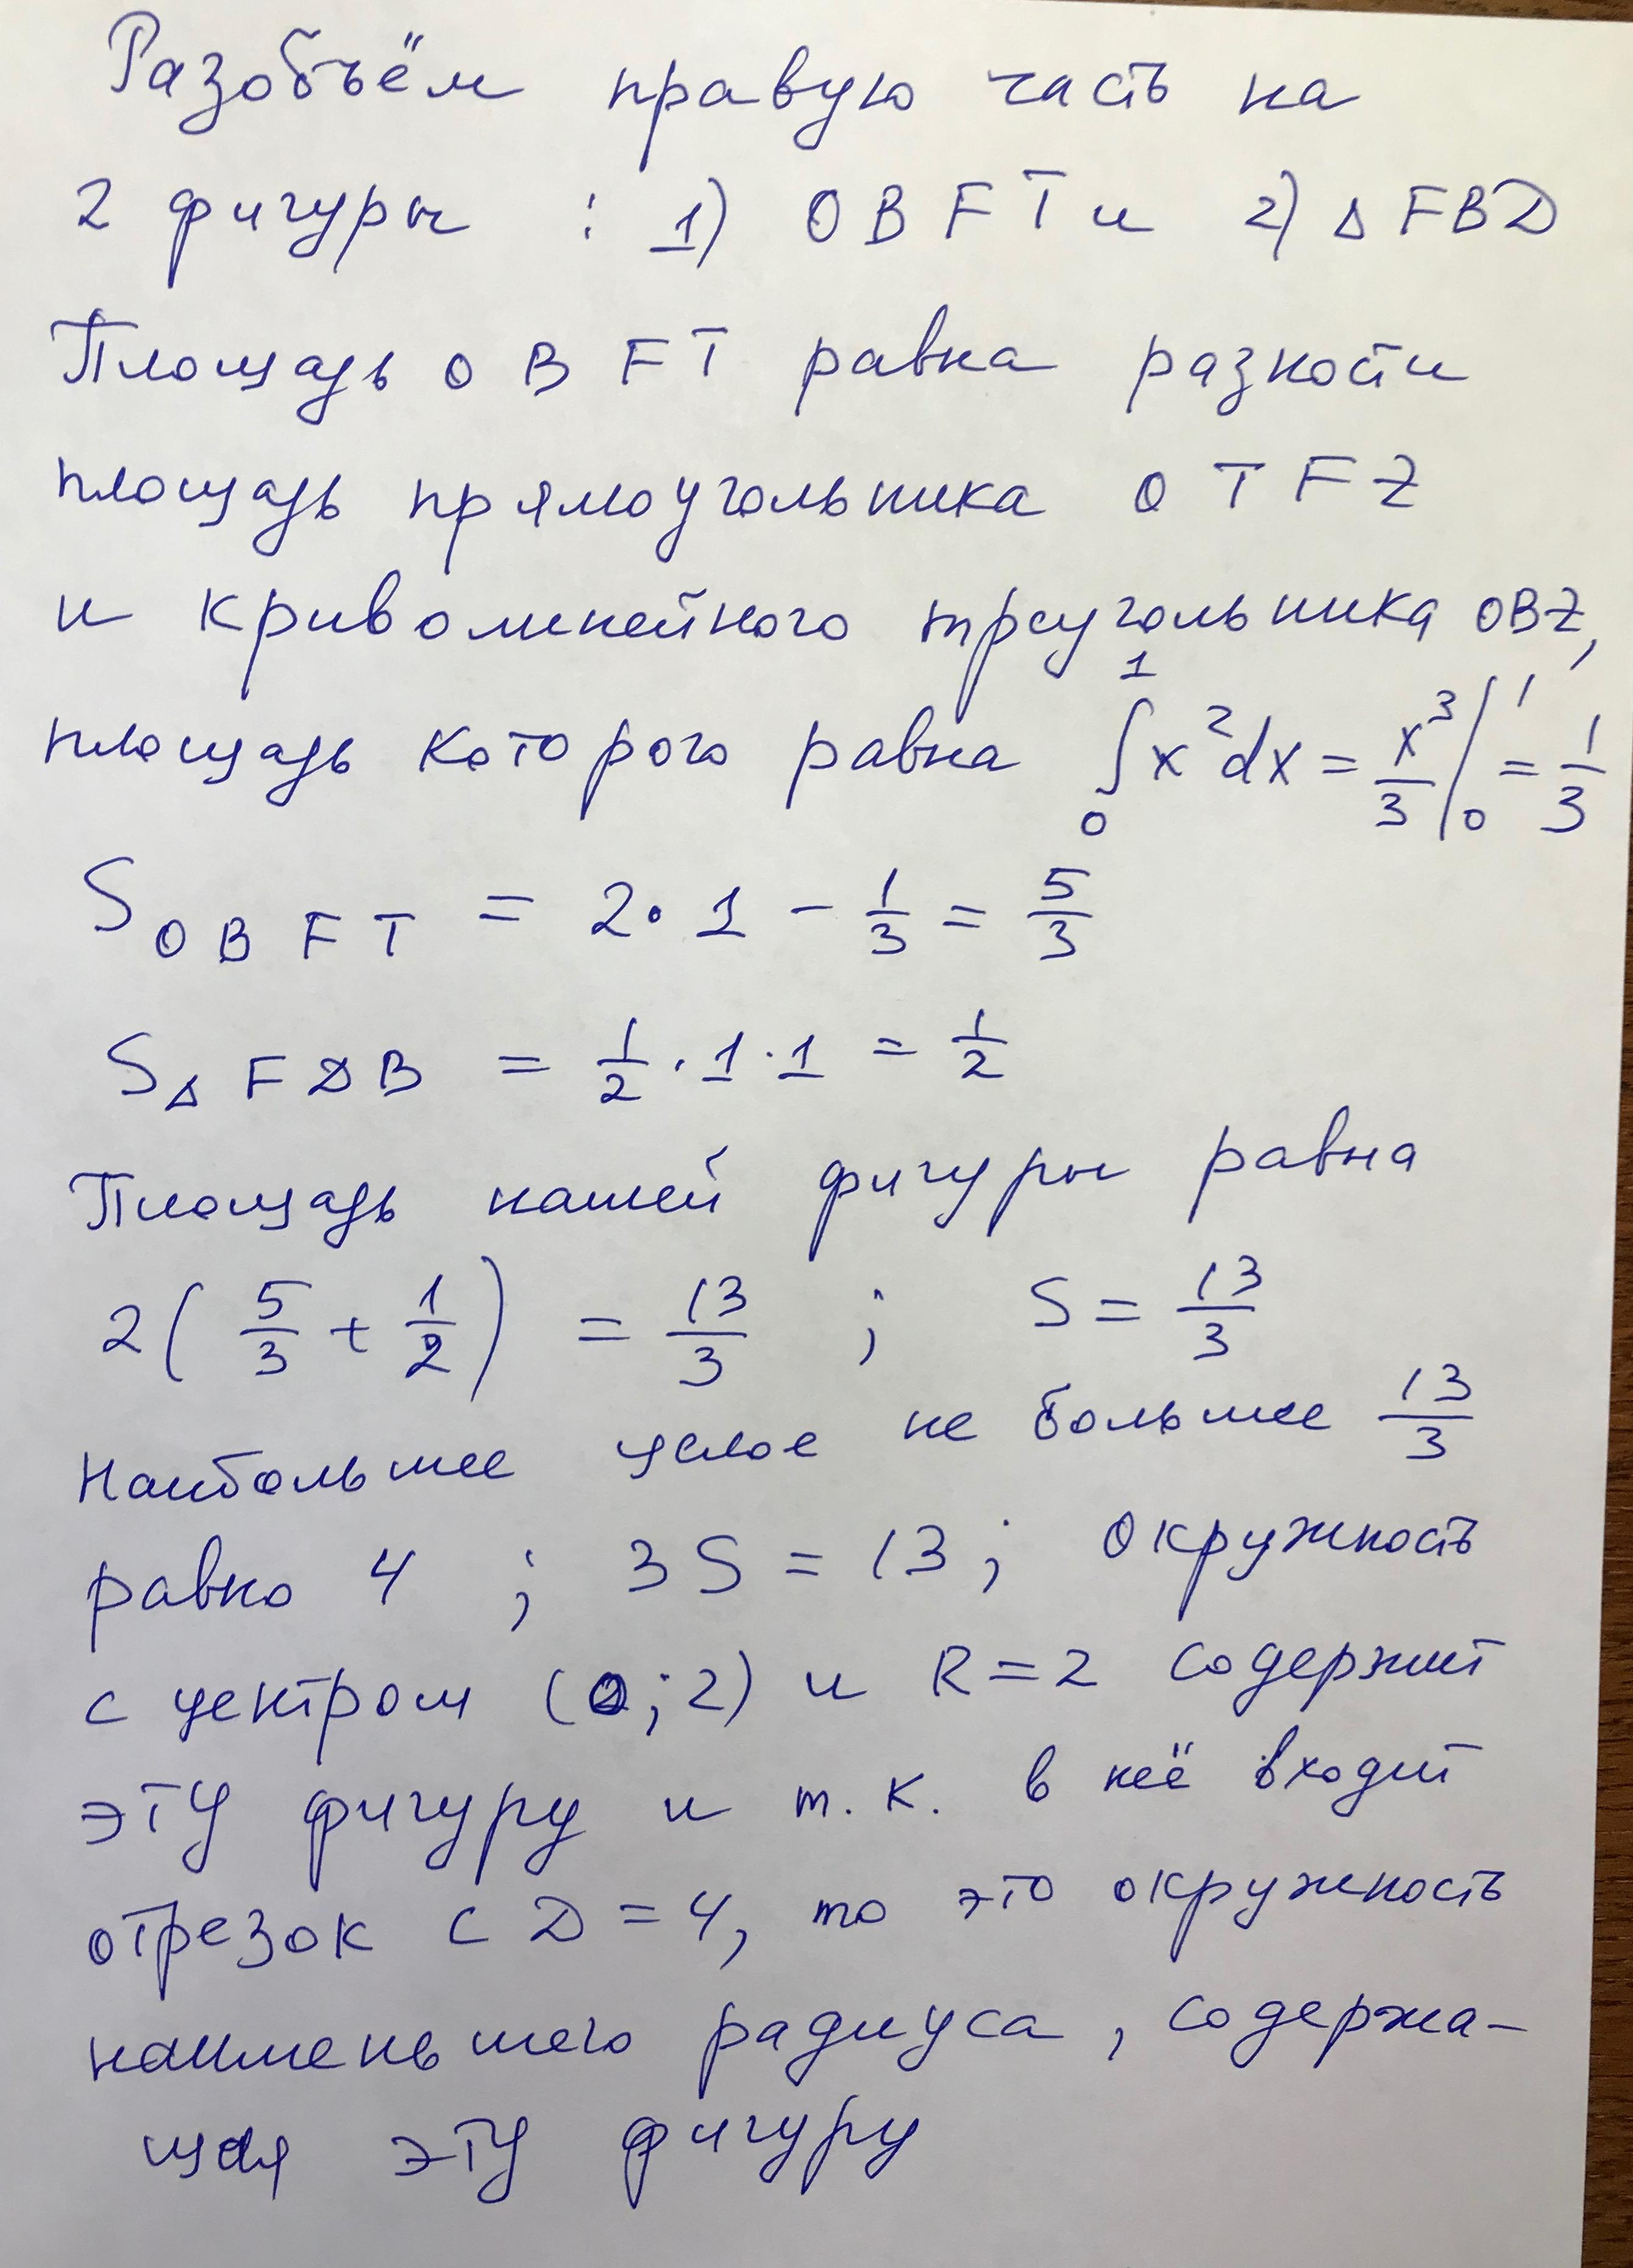 Разобъём правую часть на
2 фигуры : 1) OBFT и 2) Δ FBD
Площадь OBFT равна разности
площадь прямоугольника OTFZ
и криволинейного треугольника OBZ,
площадь которого равна ∫₀¹ x²dx = x³/3 |₀¹ = 1/3
S OBFT = 2·1 − 1/3 = 5/3
S Δ FDB = 1/2 · 1 · 1 = 1/2
Площадь нашей фигуры равна
2(5/3 + 1/2) = 13/3 ; S = 13/3
Наибольшее целое не больше 13/3
равно 4 ; 3S = 13 ; окружность
с центром (0;2) и R=2 содержит
эту фигуру и т.к. в неё входит
отрезок с D=4, то это окружность
наименьшего радиуса, содержа-
щая эту фигуру